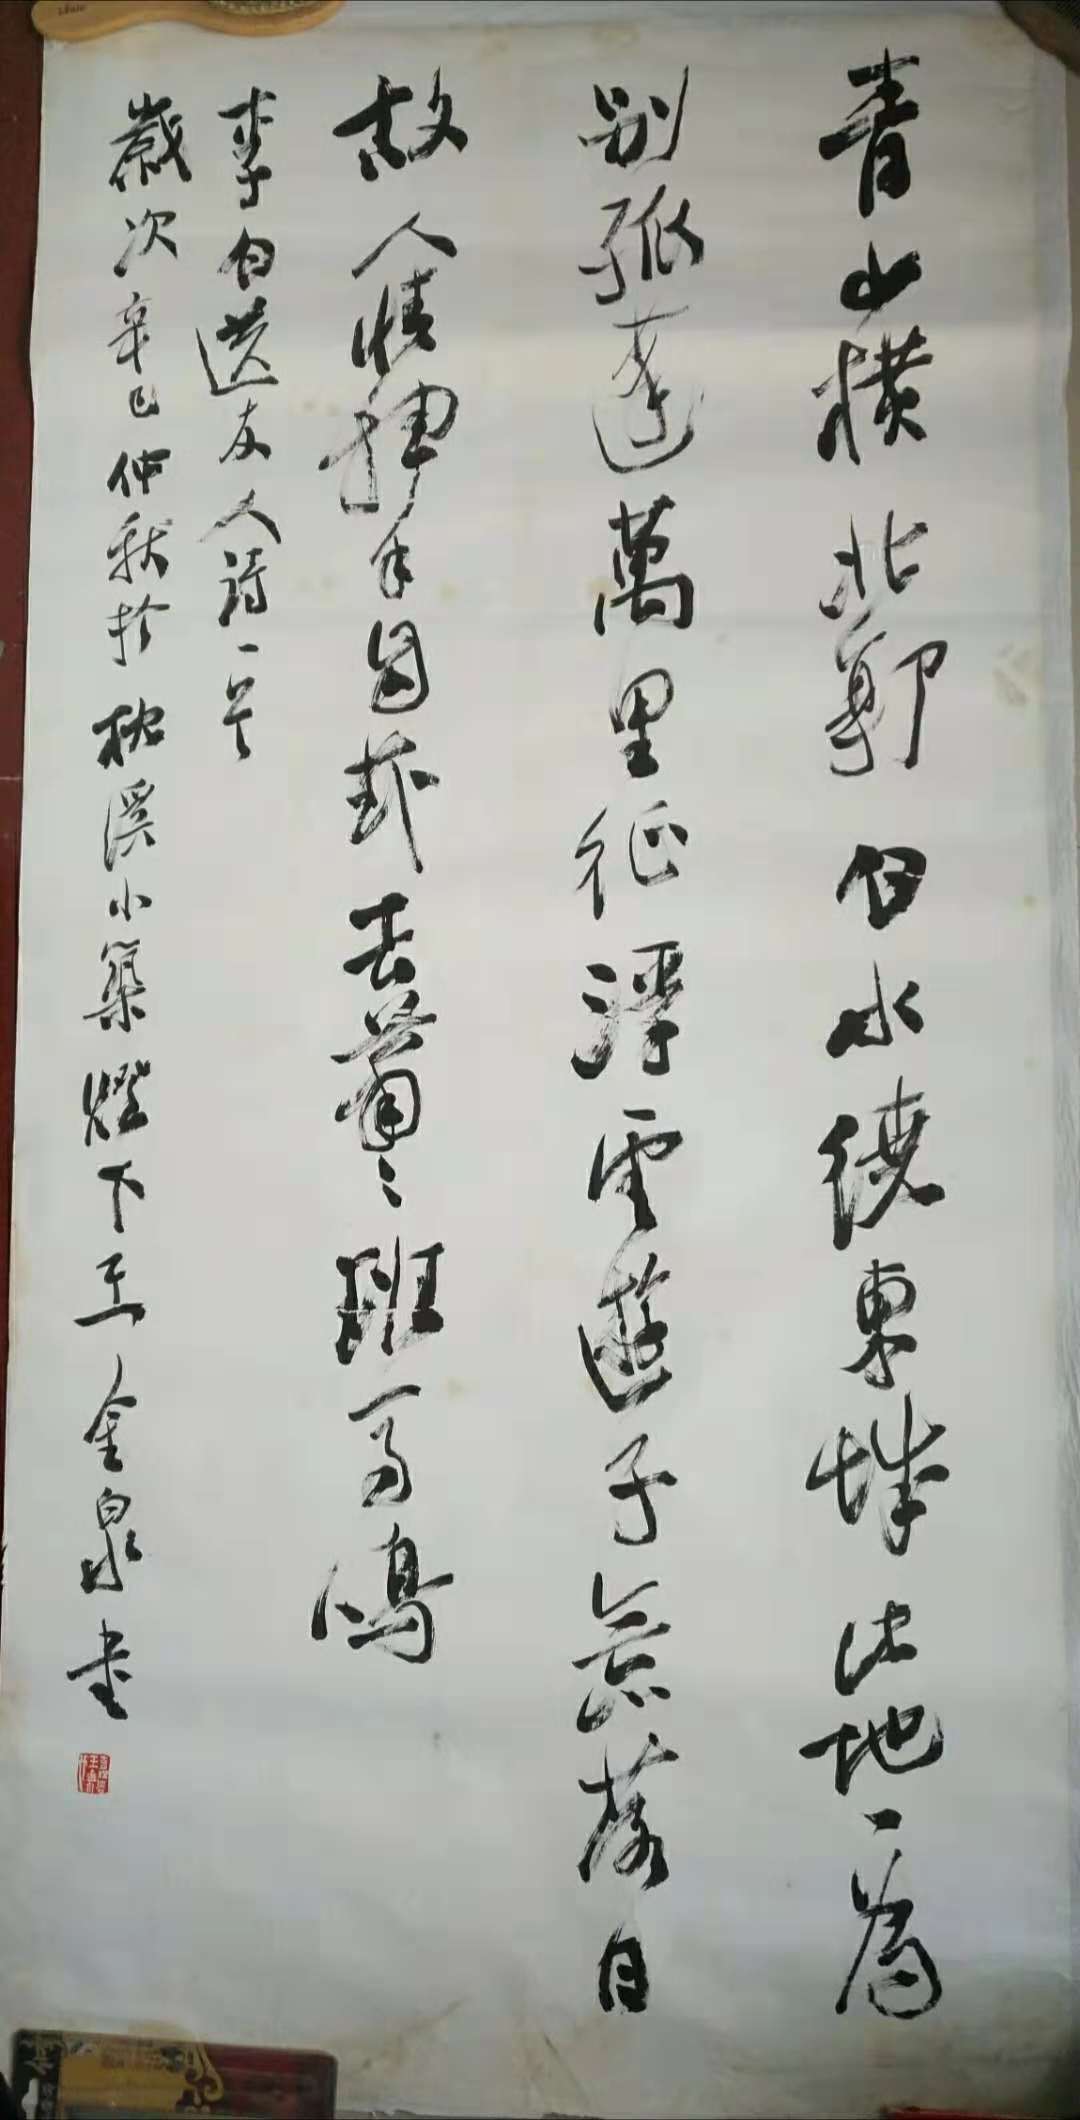 青山橫北郭白水繞東城此地一為
別孤蓬萬里征浮雲遊子意落日
故人情揮手自茲去蕭々班馬鳴
李白送友人詩一首
歲次辛巳仲秋於枕溪小築燈下王金泉書